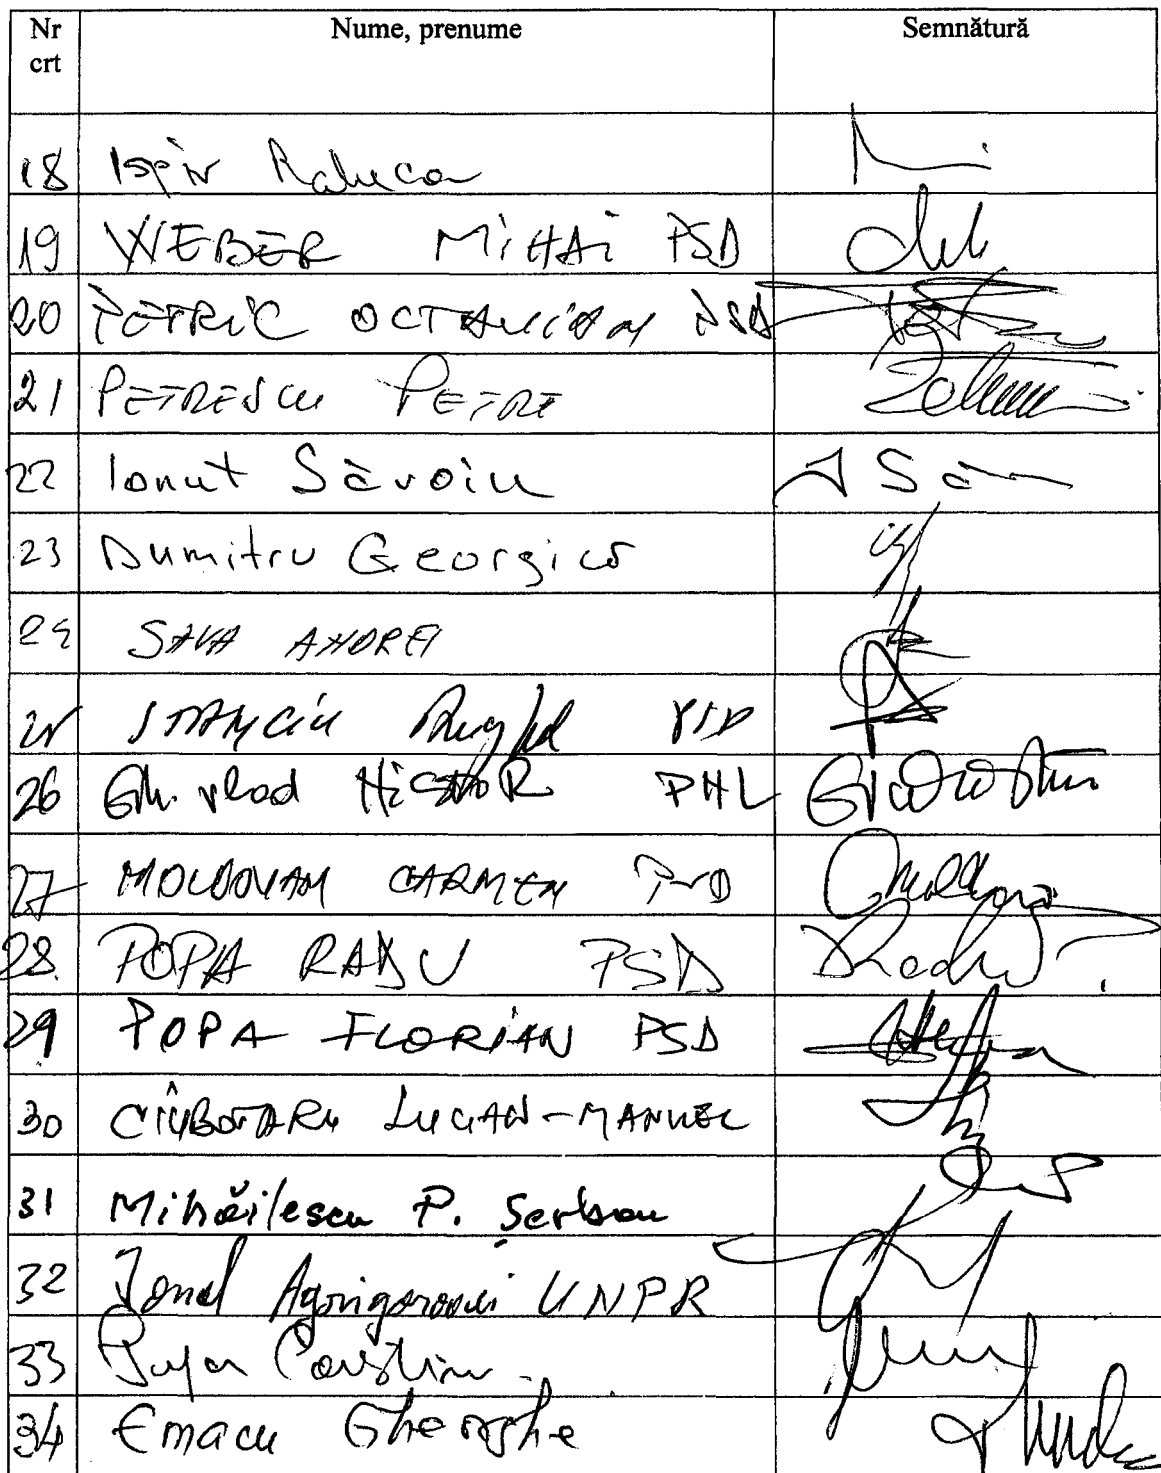 Nr crt Nume, prenume Semnătură
18 Ispir Raluca
19 WEBER MiHAi PSD
20 PETRIC OCTAVIAN PSD
21 PETRESCU PETRE
22 Ionut Săvoiu
23 Dumitru Georgică
24 SAVA ANDREI
25 STANCIU PSD
26 Gh. Vlad NISTOR PNL
27 MOLDOVAN CARMEN PSD
28 POPA RADU PSD
29 POPA FLORIAN PSD
30 CIUBOTARU LUCIAN-MANUEL
31 Mihăilescu P. Șerban
32 Ionel Agrigoroaei UNPR
33
34 Emacu Gheorghe